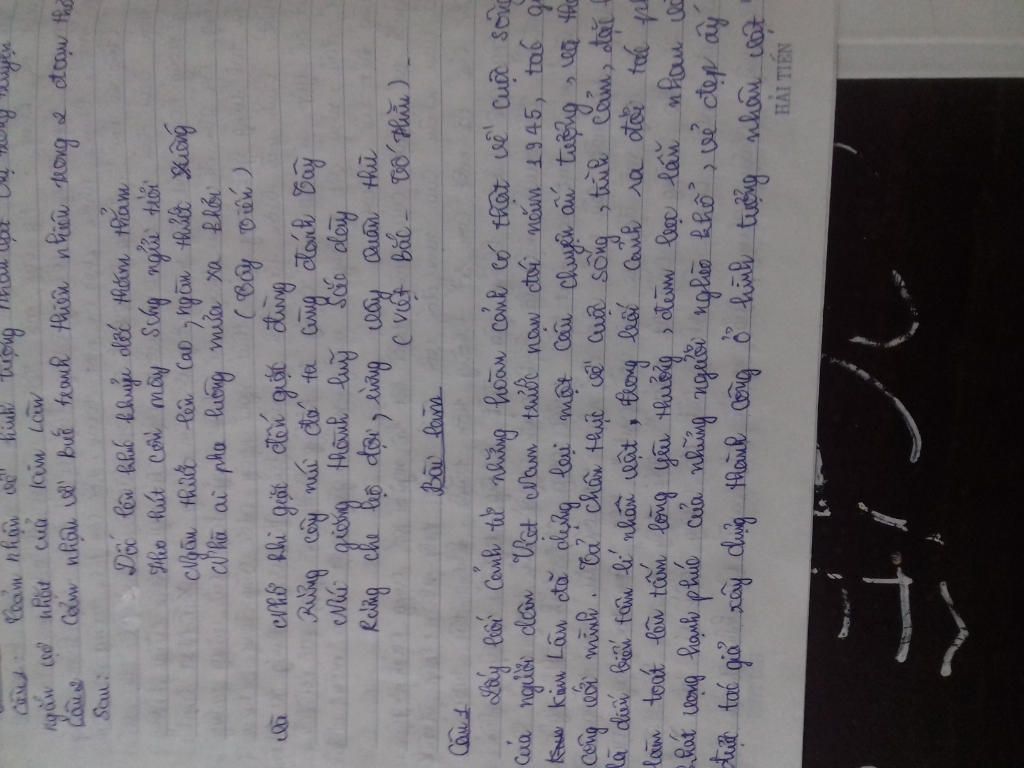 Câu 1 Cảm nhận về hình tượng nhân vật
ngắn vợ nhặt của Kim Lân
Câu 2 Cảm nhận về bức tranh thiên nhiên trong 2 đoạn thơ
Sau:
Dốc lên khúc khuỷu dốc thăm thẳm
Heo hút cồn mây Súng ngửi trời
Ngàn thước lên cao, ngàn thước xuống
Nhà ai pha luông mưa xa khơi
(Tây Tiến)
Và Nhớ khi giặc đến giặc đùng
Rừng cây núi đá ta cùng đánh tây
Núi giăng thành luỹ Sắc dày
Rừng che bộ đội, rừng vây quân thù
(Việt Bắc - Tố Hữu)
Bài làm
Câu 1
Lấy bối cảnh từ những hoàn cảnh có thật về cuộc sống
của người dân Việt Nam trước nạn đói năm 1945, tác
Kim Lân đã dựng lại một câu chuyện ấn tượng, và
công với mình. Từ chân thực về cuộc sống, tình cảm, đặc
là diễn biến tâm lí nhân vật, trong bối cảnh ra đời tác
làm toát lên tấm lòng yêu thương, đùm bọc lẫn nhau
khát vọng hạnh phúc của những người nghèo khổ, vẻ đẹp ấy
biệt tác giả xây dựng thành công ở hình tượng nhân vật
HẢI TIẾN